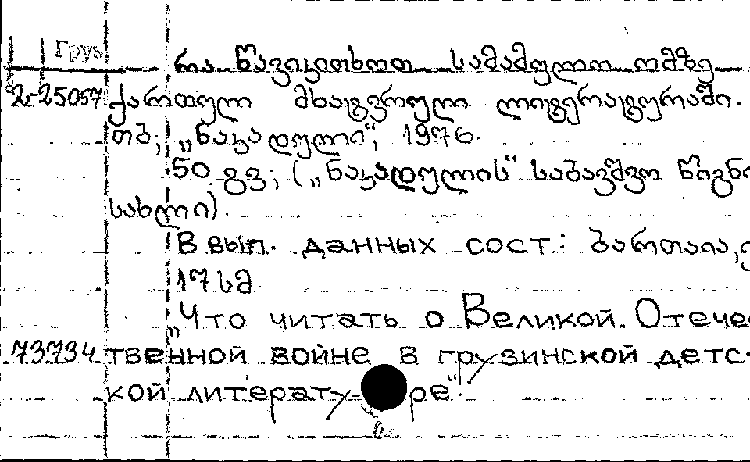 Груз
რა წავიკითხოთ სამამულო ომზე
2г25057 ქართულ მხატვრულ ლიტერატურაში.
თბ., „ნაკადული“, 1976.
50 გვ; („ნაკადულის“ საბავშვო წიგნი
სახლი).
В вып. данных сост: ბართაია,
17 სმ
„Что читать о Великой Отече
73734 твенной войне в грузинской детс-
кой литерату-ре“.